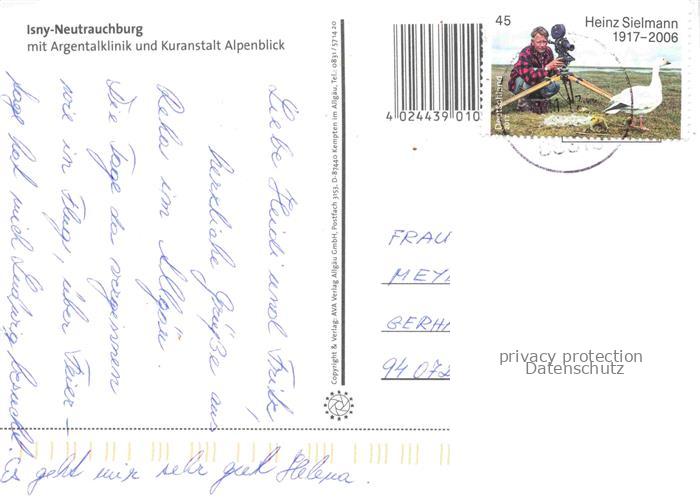 Isny-Neutrauchburg
mit Argentalklinik und Kuranstalt Alpenblick
Liebe Heidi und Fritz,
herzliche Grüße aus
Reha im Allgäu.
Die Tage da vergeinnen
wie im Flug, über Feier-
tage hat mich Ludwig besucht.
Es geht mir sehr gut Helena.
Copyright & Verlag: AVA Verlag Allgäu GmbH, Postfach 3153, D-87440 Kempten im Allgäu, Tel.: 0831 / 5714 20
4 024439 010
45
Heinz Sielmann
1917–2006
Deutschland
2017
FRAU
MEY
GERHA
94072
privacy protection
Datenschutz